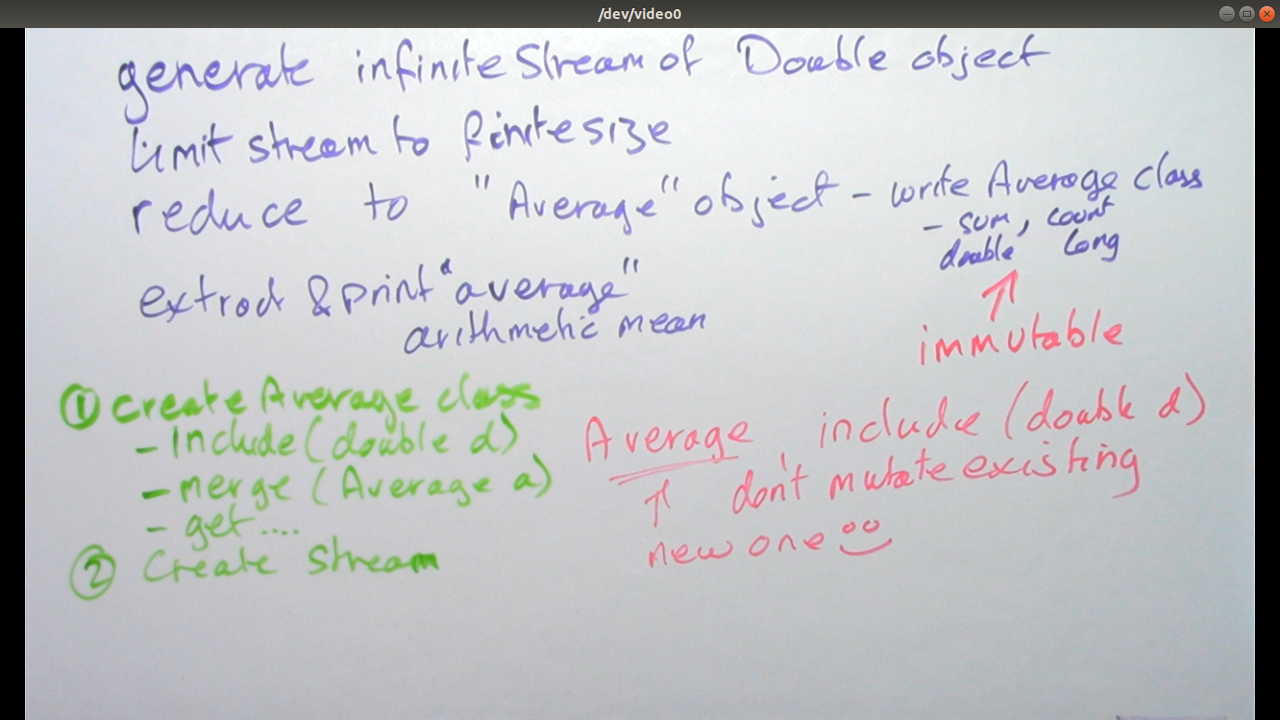 /dev/video0
generate infinite Stream of Double object
limit stream to finite size
reduce to "Average" object - write Average class
- sum, count
double long
extract & print "average"
arithmetic mean
immutable
① Create Average class
- Include (double d)
- merge (Average a)
- get ....
② Create Stream
Average include (double d)
don't mutate existing
new one